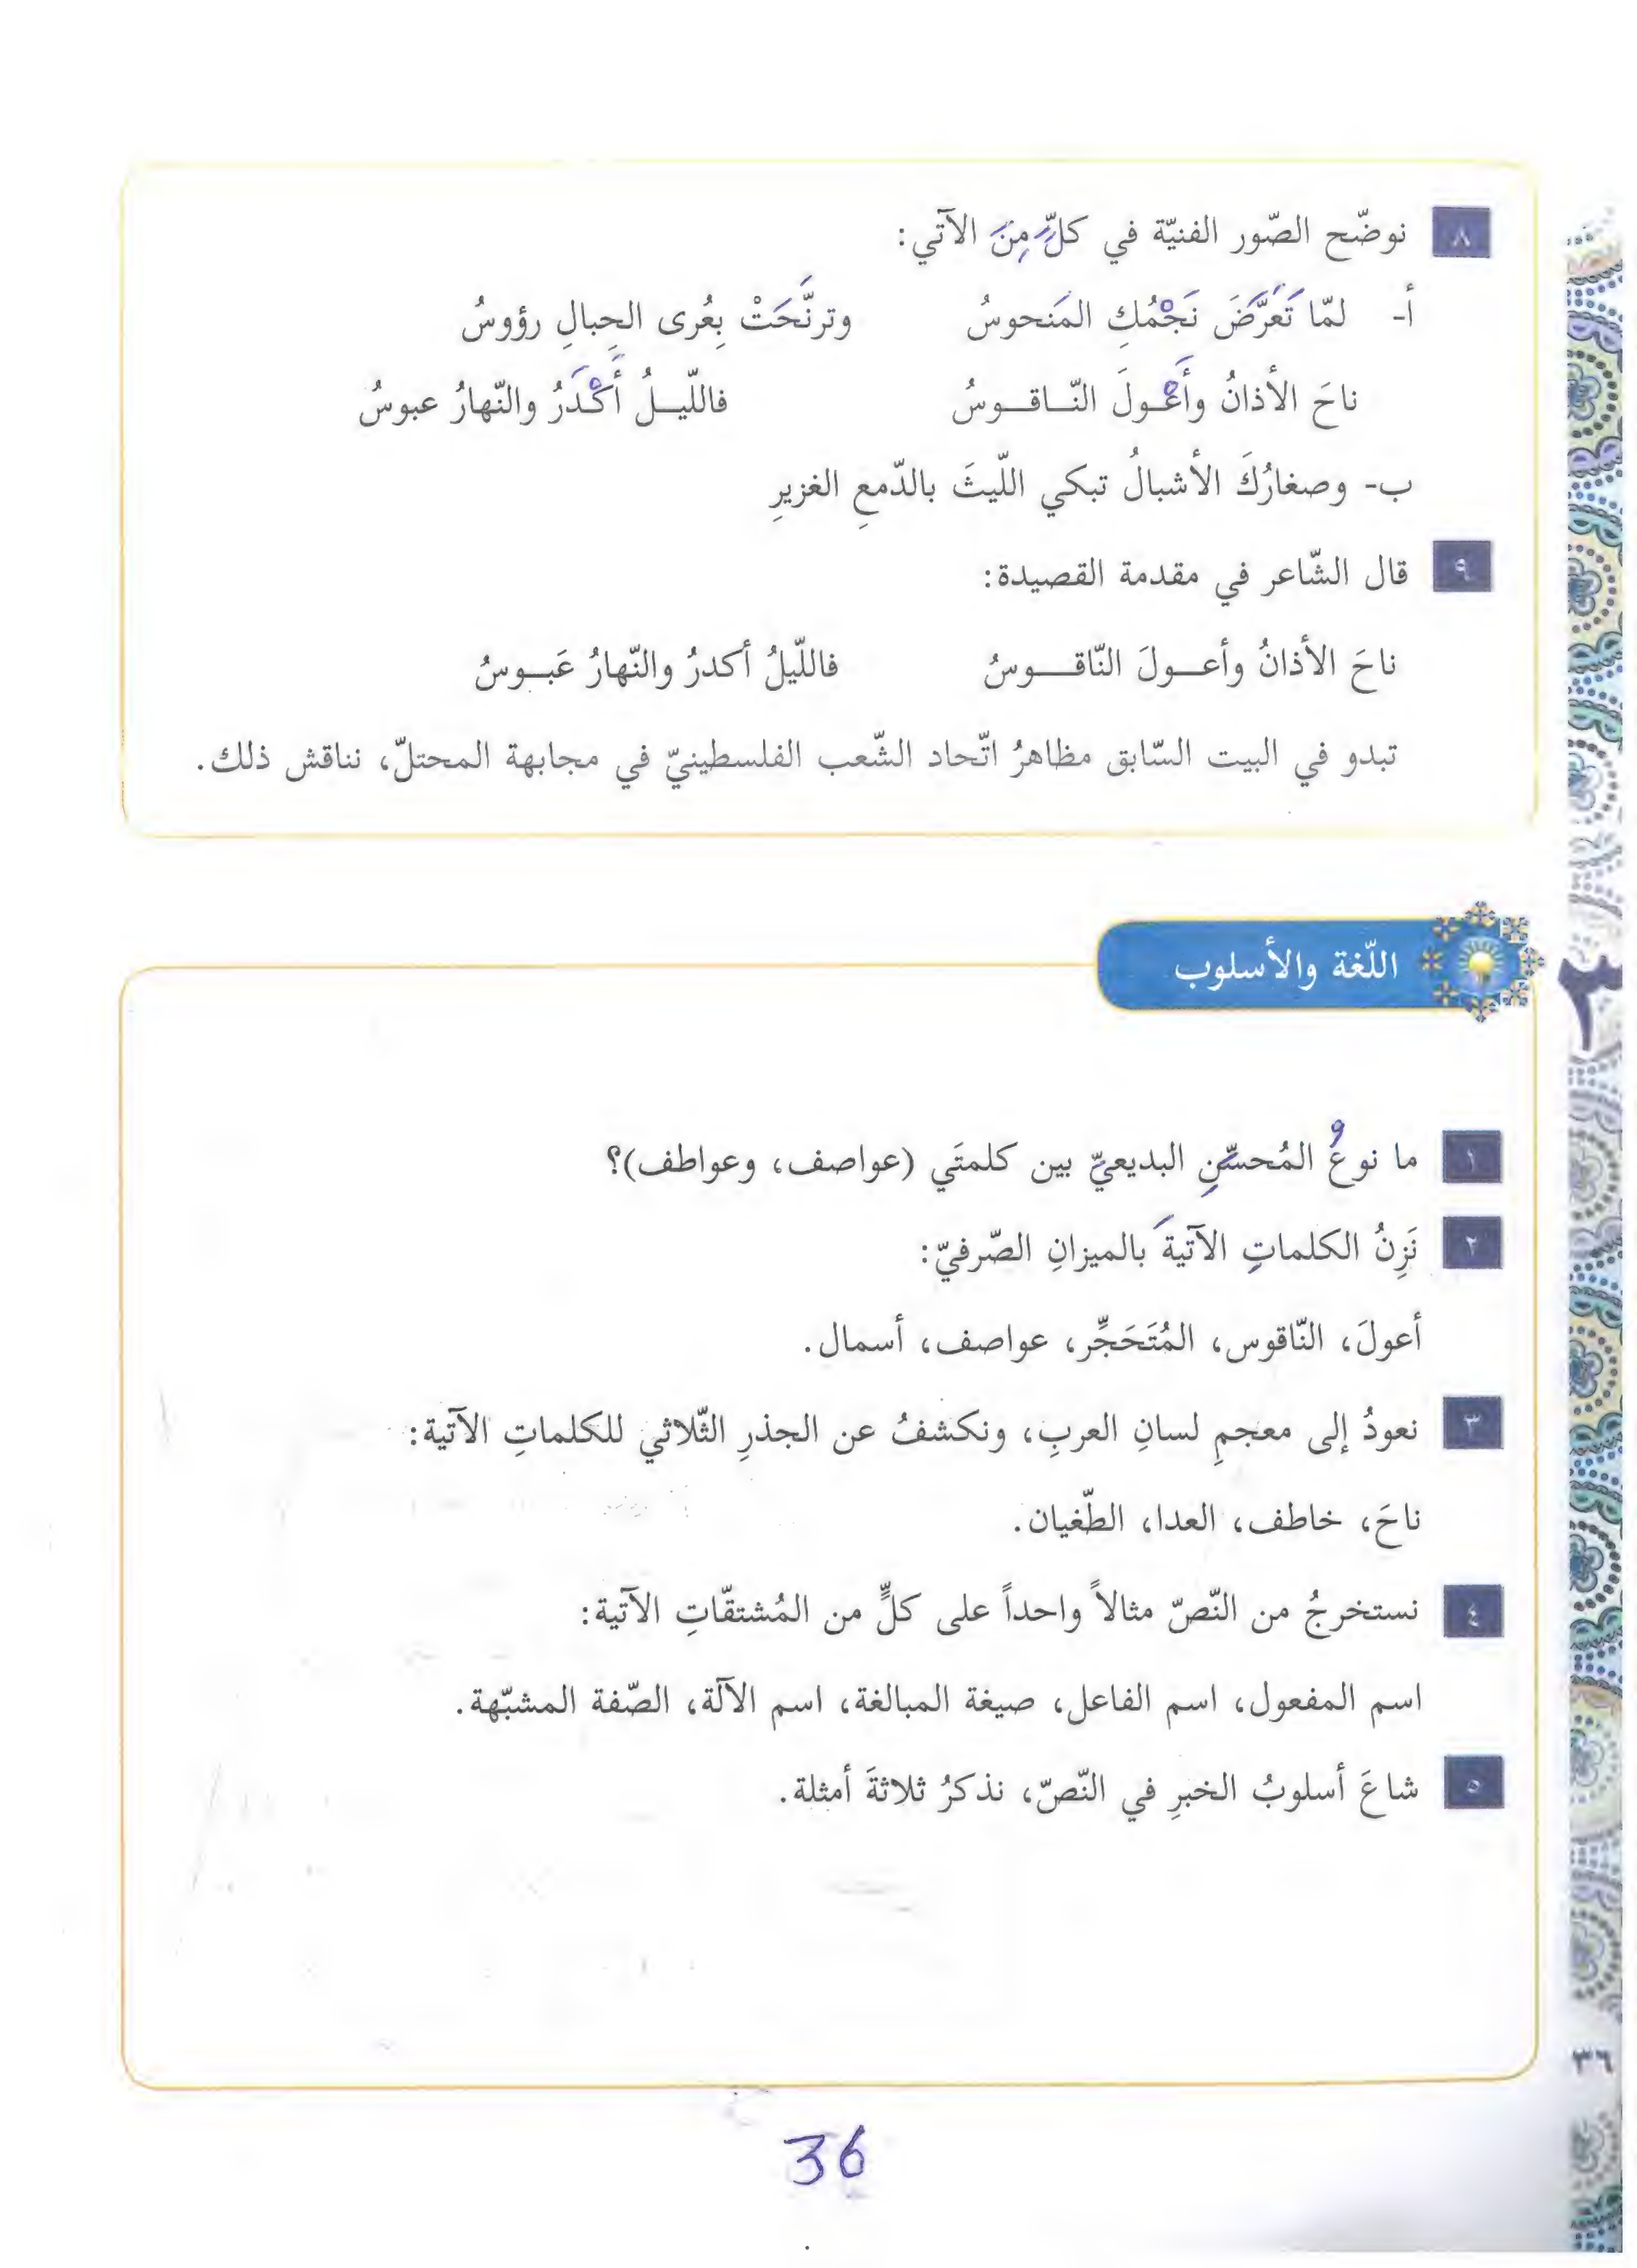 ٨ نوضّح الصّور الفنيّة في كلٍّ مِنَ الآتي:
أ- لمّا تَعَرَّضَ نَجْمُكِ المَنحوسُ وترنَّحَتْ بِعُرى الحِبالِ رؤوسُ
ناحَ الأذانُ وأَعْـولَ النّـاقـوسُ فاللّيـلُ أَكْـدَرُ والنّهارُ عبوسُ
ب- وصغارُكَ الأشبالُ تبكي اللّيثَ بالدّمعِ الغزيرِ
٩ قال الشّاعر في مقدمة القصيدة:
ناحَ الأذانُ وأعـولَ النّاقـوسُ فاللّيلُ أكدرُ والنّهارُ عَبـوسُ
تبدو في البيت السّابق مظاهرُ اتّحاد الشّعب الفلسطينيّ في مجابهة المحتلّ، نناقش ذلك.
اللّغة والأسلوب
٢
١ ما نوعُ المُحسِّنِ البديعيّ بين كلمتَي (عواصف، وعواطف)؟
٢ نَزِنُ الكلماتِ الآتيةَ بالميزانِ الصّرفيّ:
أعولَ، النّاقوس، المُتَحَجِّر، عواصف، أسمال.
٣ نعودُ إلى معجمِ لسانِ العربِ، ونكشفُ عن الجذرِ الثّلاثي للكلماتِ الآتية:
ناحَ، خاطف، العدا، الطّغيان.
٤ نستخرجُ من النّصّ مثالاً واحداً على كلٍّ من المُشتقّاتِ الآتية:
اسم المفعول، اسم الفاعل، صيغة المبالغة، اسم الآلة، الصّفة المشبّهة.
٥ شاعَ أسلوبُ الخبرِ في النّصّ، نذكرُ ثلاثةَ أمثلة.
٣٦
36